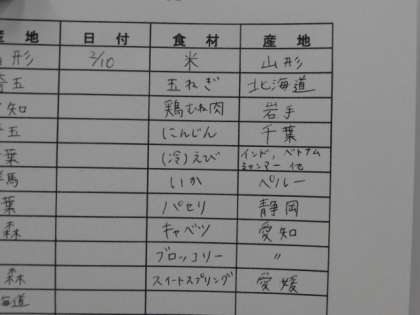 産 地 日 付 食 材 産 地
山 形 2/10 米 山 形
埼 玉 玉ねぎ 北海道
愛 知 鶏むね肉 岩手
埼 玉 にんじん 千葉
千 葉 (冷)えび インド、ベトナム
ミャンマー 他
群 馬 いか ペルー
千 葉 パセリ 静岡
青 森 キャベツ 愛知
ブロッコリー 〃
青 森 スイートスプリング 愛媛
北海道